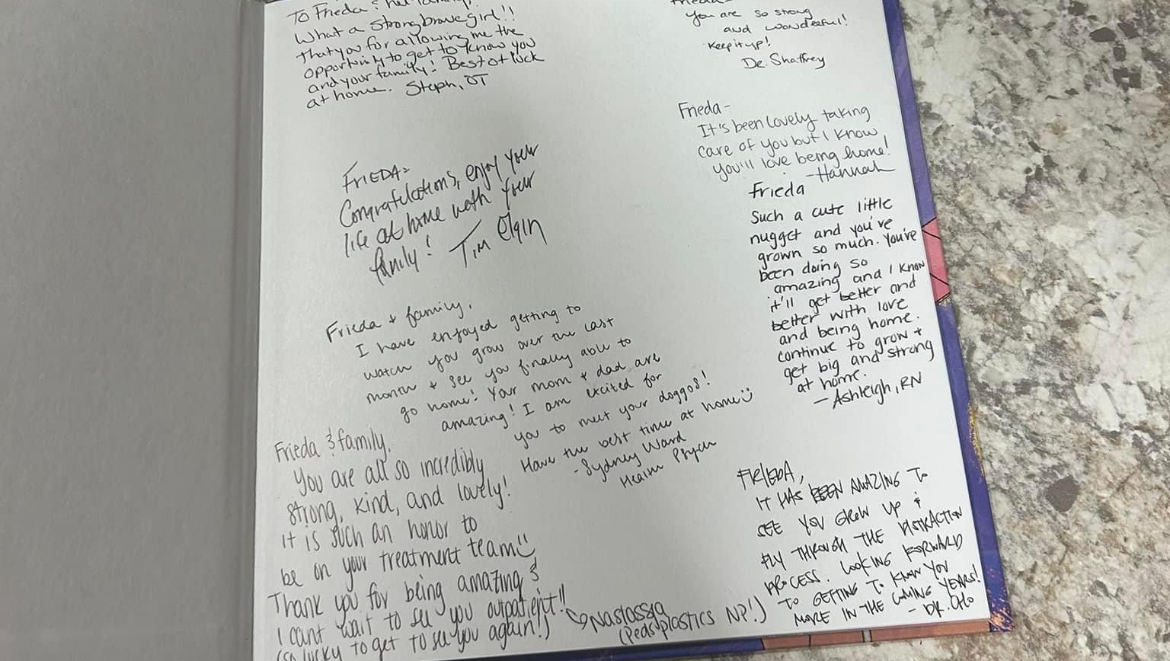 To Frieda & her family!!
What a strong brave girl!!
Thatyou for allowing me the
opportunity to get to know you
and your family! Best of luck
at home. Steph, OT
Frieda-
you are so strong
and wonderful!
Keep it up!
De Shaffrey
Frieda-
It's been lovely taking
care of you but I know
you'll love being home!
-Hannah
FRIEDA-
Congratulations, enjoy your
life at home with your
family! Tim Elgin
Frieda
Such a cute little
nugget and you've
grown so much. You've
been doing so
amazing and I know
it'll get better and
better with love
and being home.
continue to grow +
get big and strong
at home.
- Ashleigh, RN
Frieda + family,
I have enjoyed getting to
watch you grow over the last
month + see you finally able to
go home! Your mom + dad are
amazing! I am excited for
you to meet your doggos!
Have the best time at home
- Sydney Ward
Health Psych
Frieda & family,
You are all so incredibly
strong, kind, and lovely!
it is such an honor to
be on your treatment team
Thank you for being amazing &
I cant wait to see you outpatient!!
(so lucky to get to see you again!)
Nastassja
(Peds plastics NP!)
FRIEDA,
IT HAS BEEN AMAZING TO
SEE YOU GROW UP &
FLY THROUGH THE DISTRACTION
PROCESS. LOOKING FORWARD
TO GETTING TO KNOW YOU
MORE IN THE COMING YEARS!
- DR. CHO